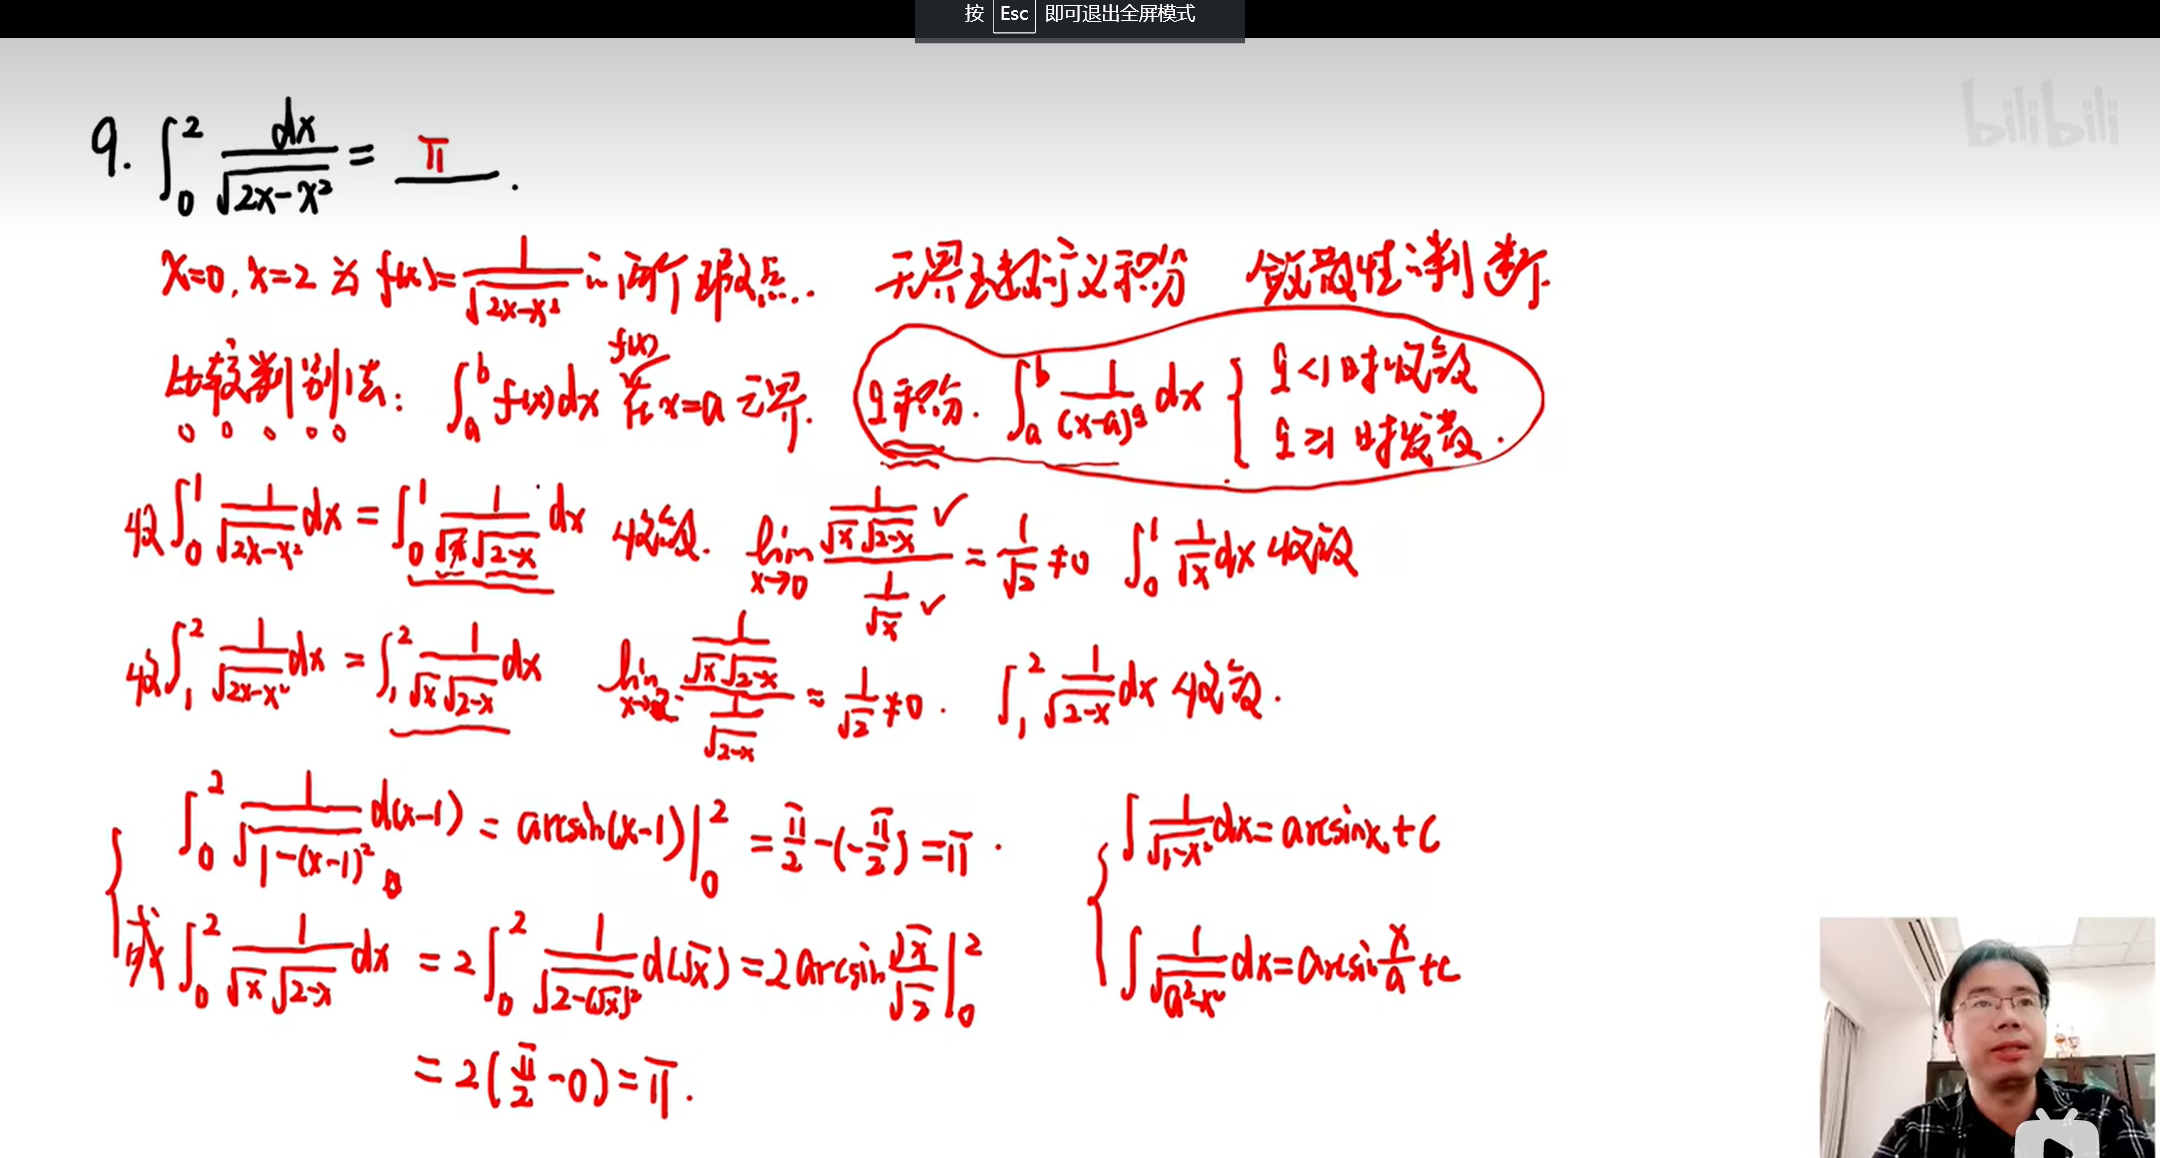 按 Esc 即可退出全屏模式
bilibili
9. ∫₀² dx/√(2x-x²) = π .
x=0, x=2 为 f(x)=1/√(2x-x²) 的两个瑕点. 无界函数广义积分 敛散性的判断.
比较判别法: ∫ₐᵇ f(x)dx f(x)在x=a无界. q积分. ∫ₐᵇ 1/(x-a)^q dx { q<1时收敛 q≥1时发散.
4又∫₀¹ 1/√(2x-x²) dx = ∫₀¹ 1/(√x√(2-x)) dx 收敛. lim x→0 (1/(√x√(2-x)))/(1/√x) = 1/√2 ≠0 ∫₀¹ 1/√x dx 收敛
4又∫₁² 1/√(2x-x²) dx = ∫₁² 1/(√x√(2-x)) dx lim x→2⁻ (1/(√x√(2-x)))/(1/√(2-x)) = 1/√2 ≠0. ∫₁² 1/√(2-x) dx 收敛.
{ ∫₀² 1/√(1-(x-1)²) d(x-1) = arcsin(x-1)|₀² = π/2-(-π/2) = π . { ∫ 1/√(1-x²) dx = arcsinx+C
或 ∫₀² 1/(√x√(2-x)) dx = 2∫₀² 1/√(2-(√x)²) d(√x) = 2arcsin √x/√2 |₀² ∫ 1/√(a²-x²) dx = arcsin x/a +C
= 2(π/2-0) = π.